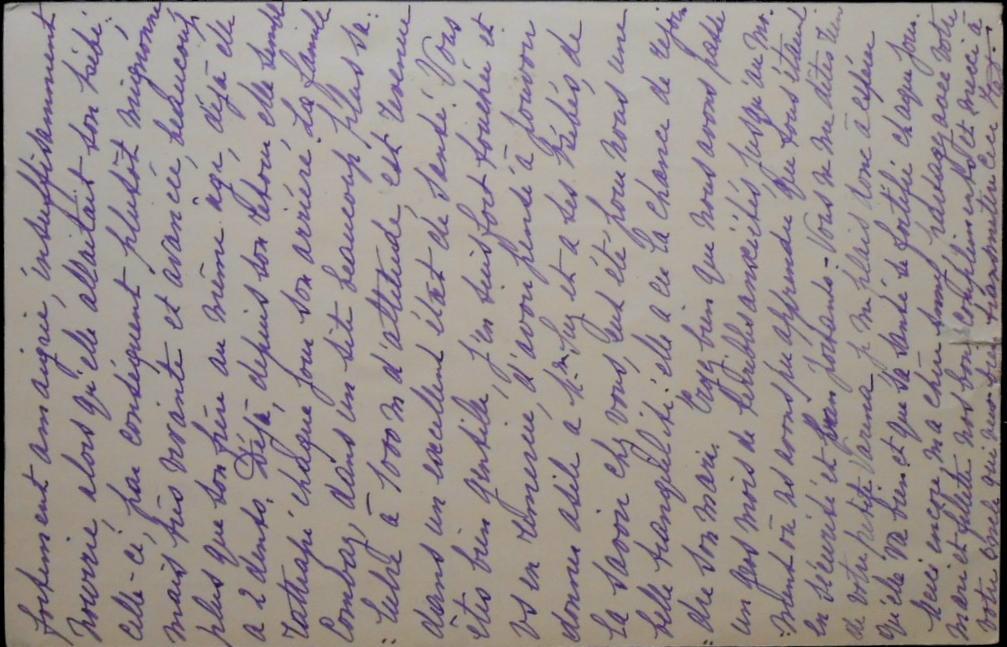 forcément amaigrie, insuffisamment
nourrie, alors qu'elle allaitait son bébé.
Celle-ci, par conséquent plutôt mignonne
mais très vivante et avancée, beaucoup
plus que son frère au même âge, déjà elle
a 2 dents. Déjà, depuis son retour elle semble
rattrapé chaque jour son arriéré. La famille
Combaz, dans un site beaucoup plus sa-
=lubre à 1000 m d'altitude est revenue
dans un excellent état de santé. Vous
êtes bien gentille, j'en suis fort touchée et
vs en remercie, d'avoir pensé à pouvoir
donner asile à et à ses bébés, de
la savoir chez vous, eut été pour nous une
belle tranquillité; elle a eu la chance de rejoin
=dre son mari. Croyez bien que nous avons passé
un gros mois de terribles anxiétés jusqu'au mo-
=ment où ns avons pu apprendre que tous étaient
en sécurité et bien portants. Vous ne me dites rien
de votre petite je me plais donc à espérer
qu'elle va bien et que sa santé se fortifie chaque jour.
Merci encore ma chère amie, partagez avec votre
mari et fillette nos bons et merci à
votre oncle qui veut bien transmettre ceci